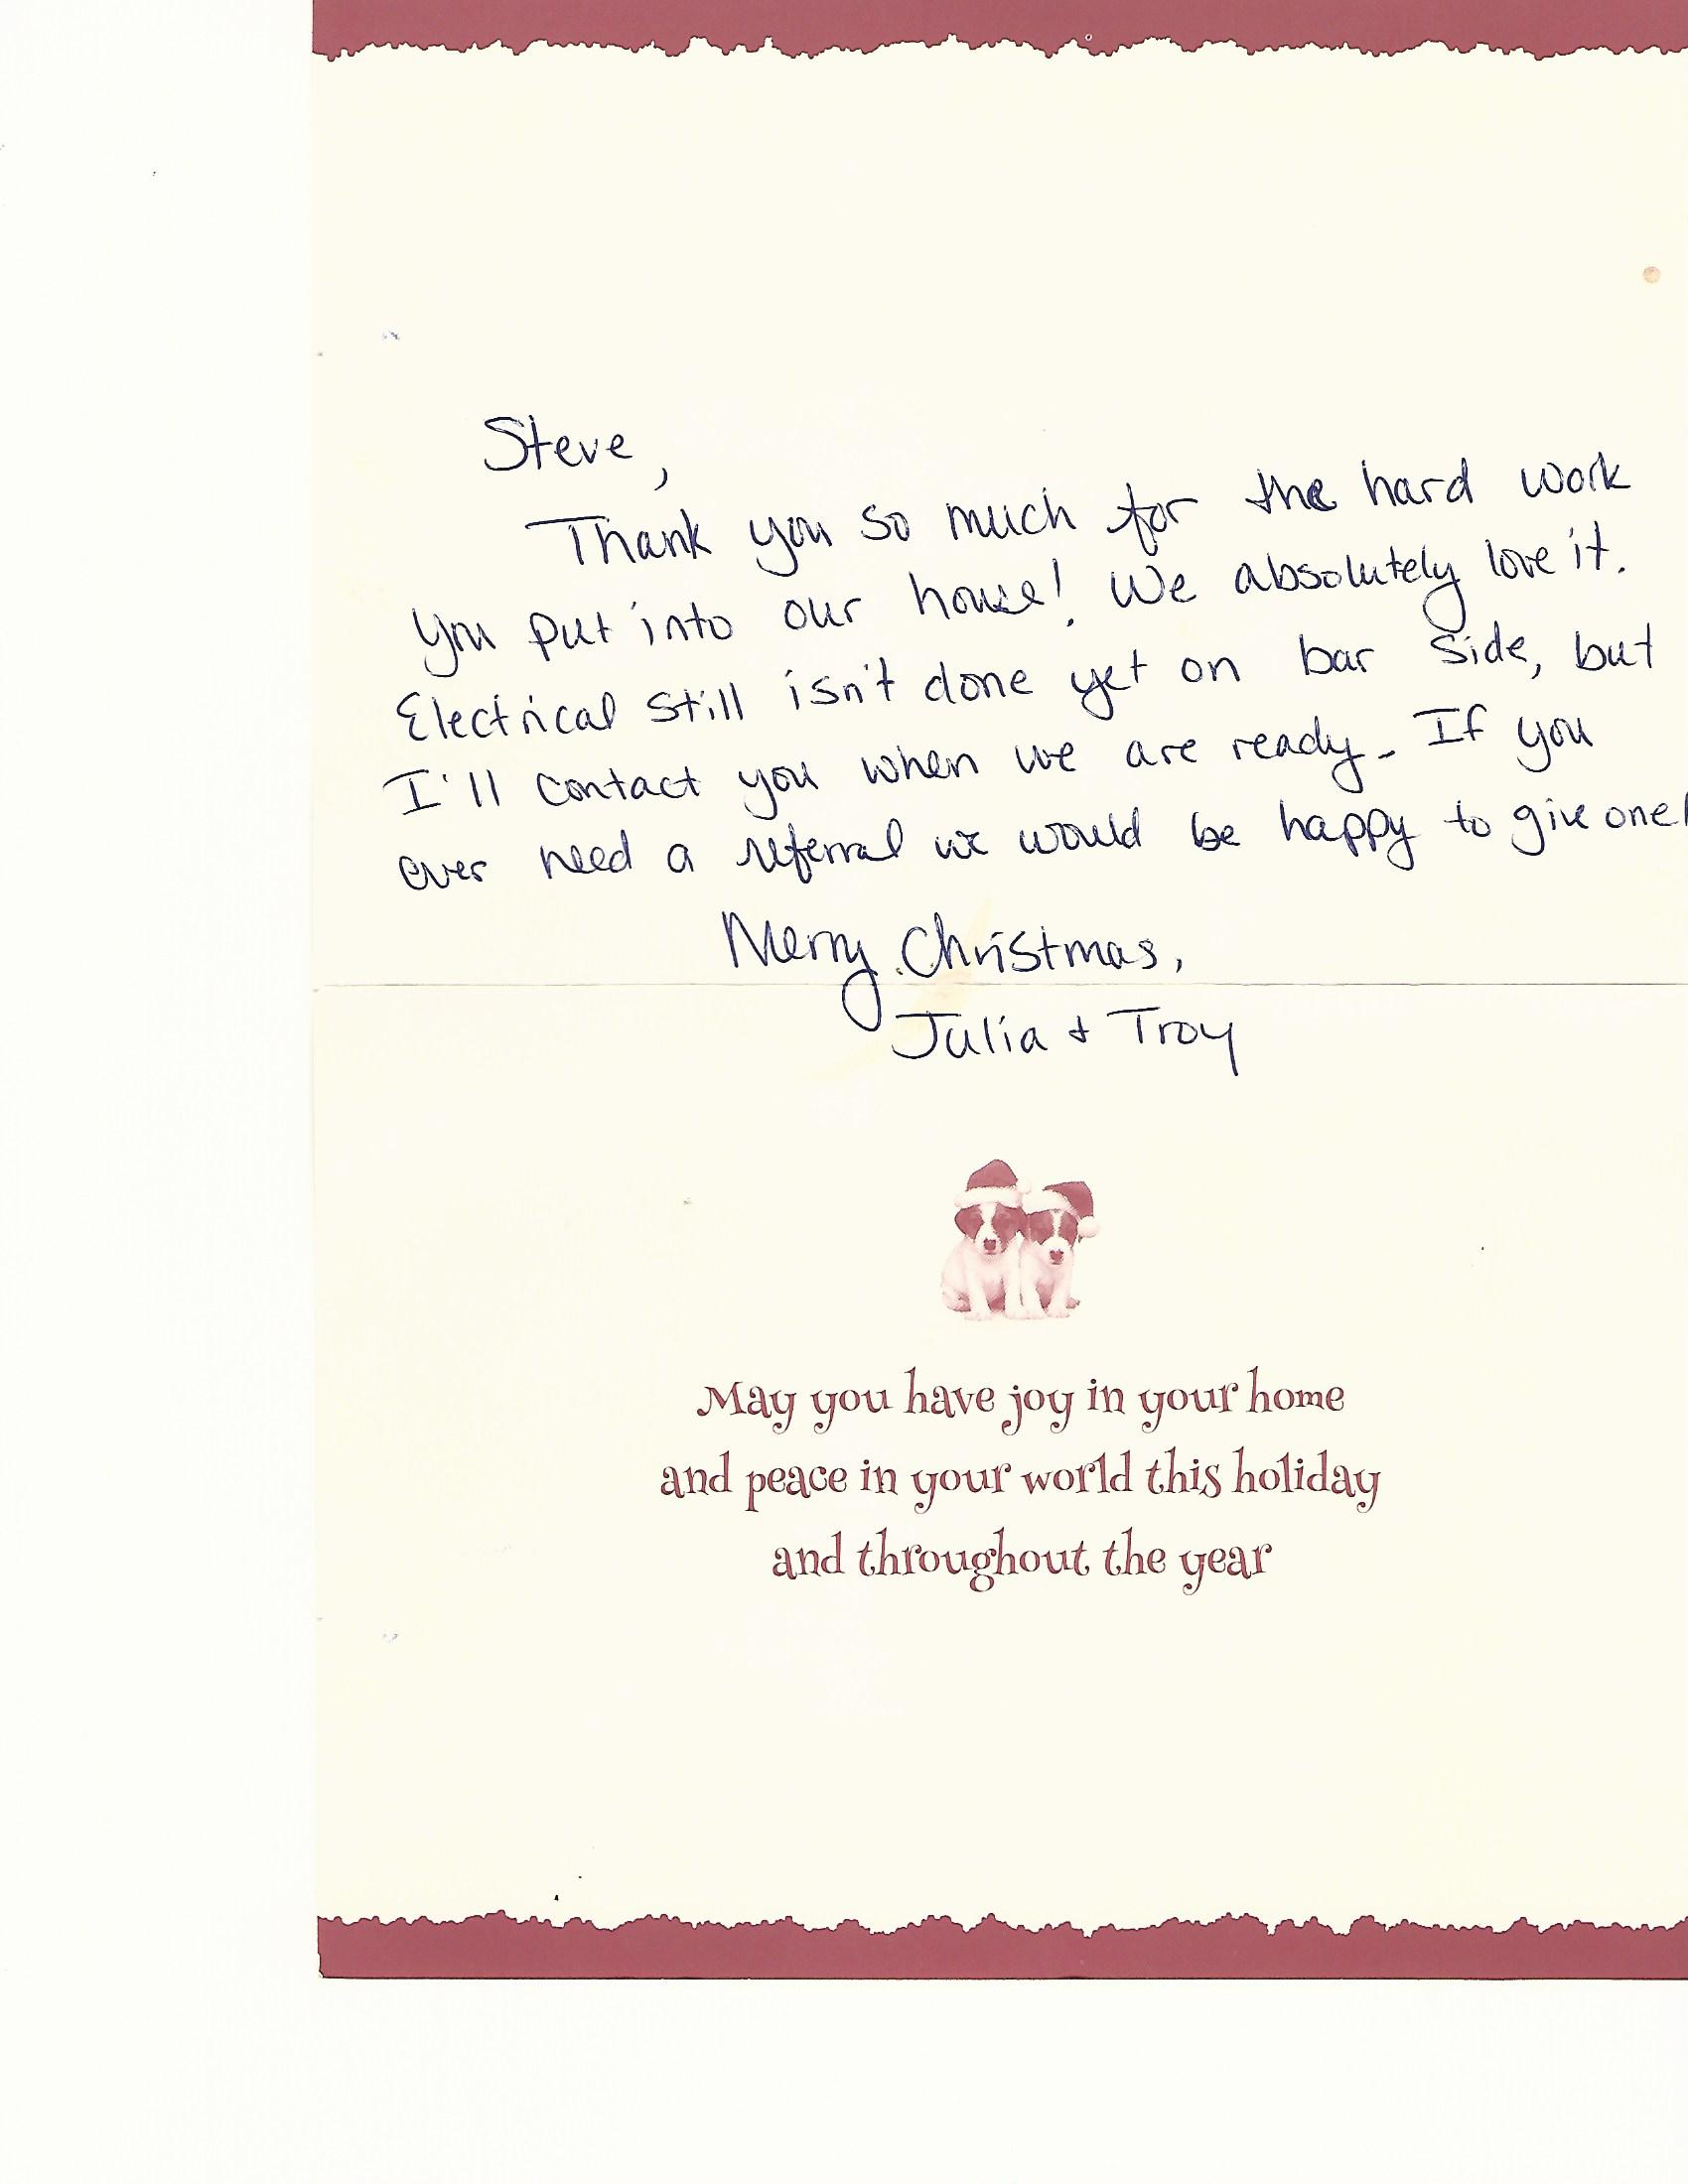 Steve,
Thank you so much for the hard work
you put into our house! We absolutely love it.
Electrical still isn't done yet on bar side, but
I'll contact you when we are ready. If you
ever need a referral we would be happy to give one!
Merry Christmas,
Julia + Troy
May you have joy in your home
and peace in your world this holiday
and throughout the year